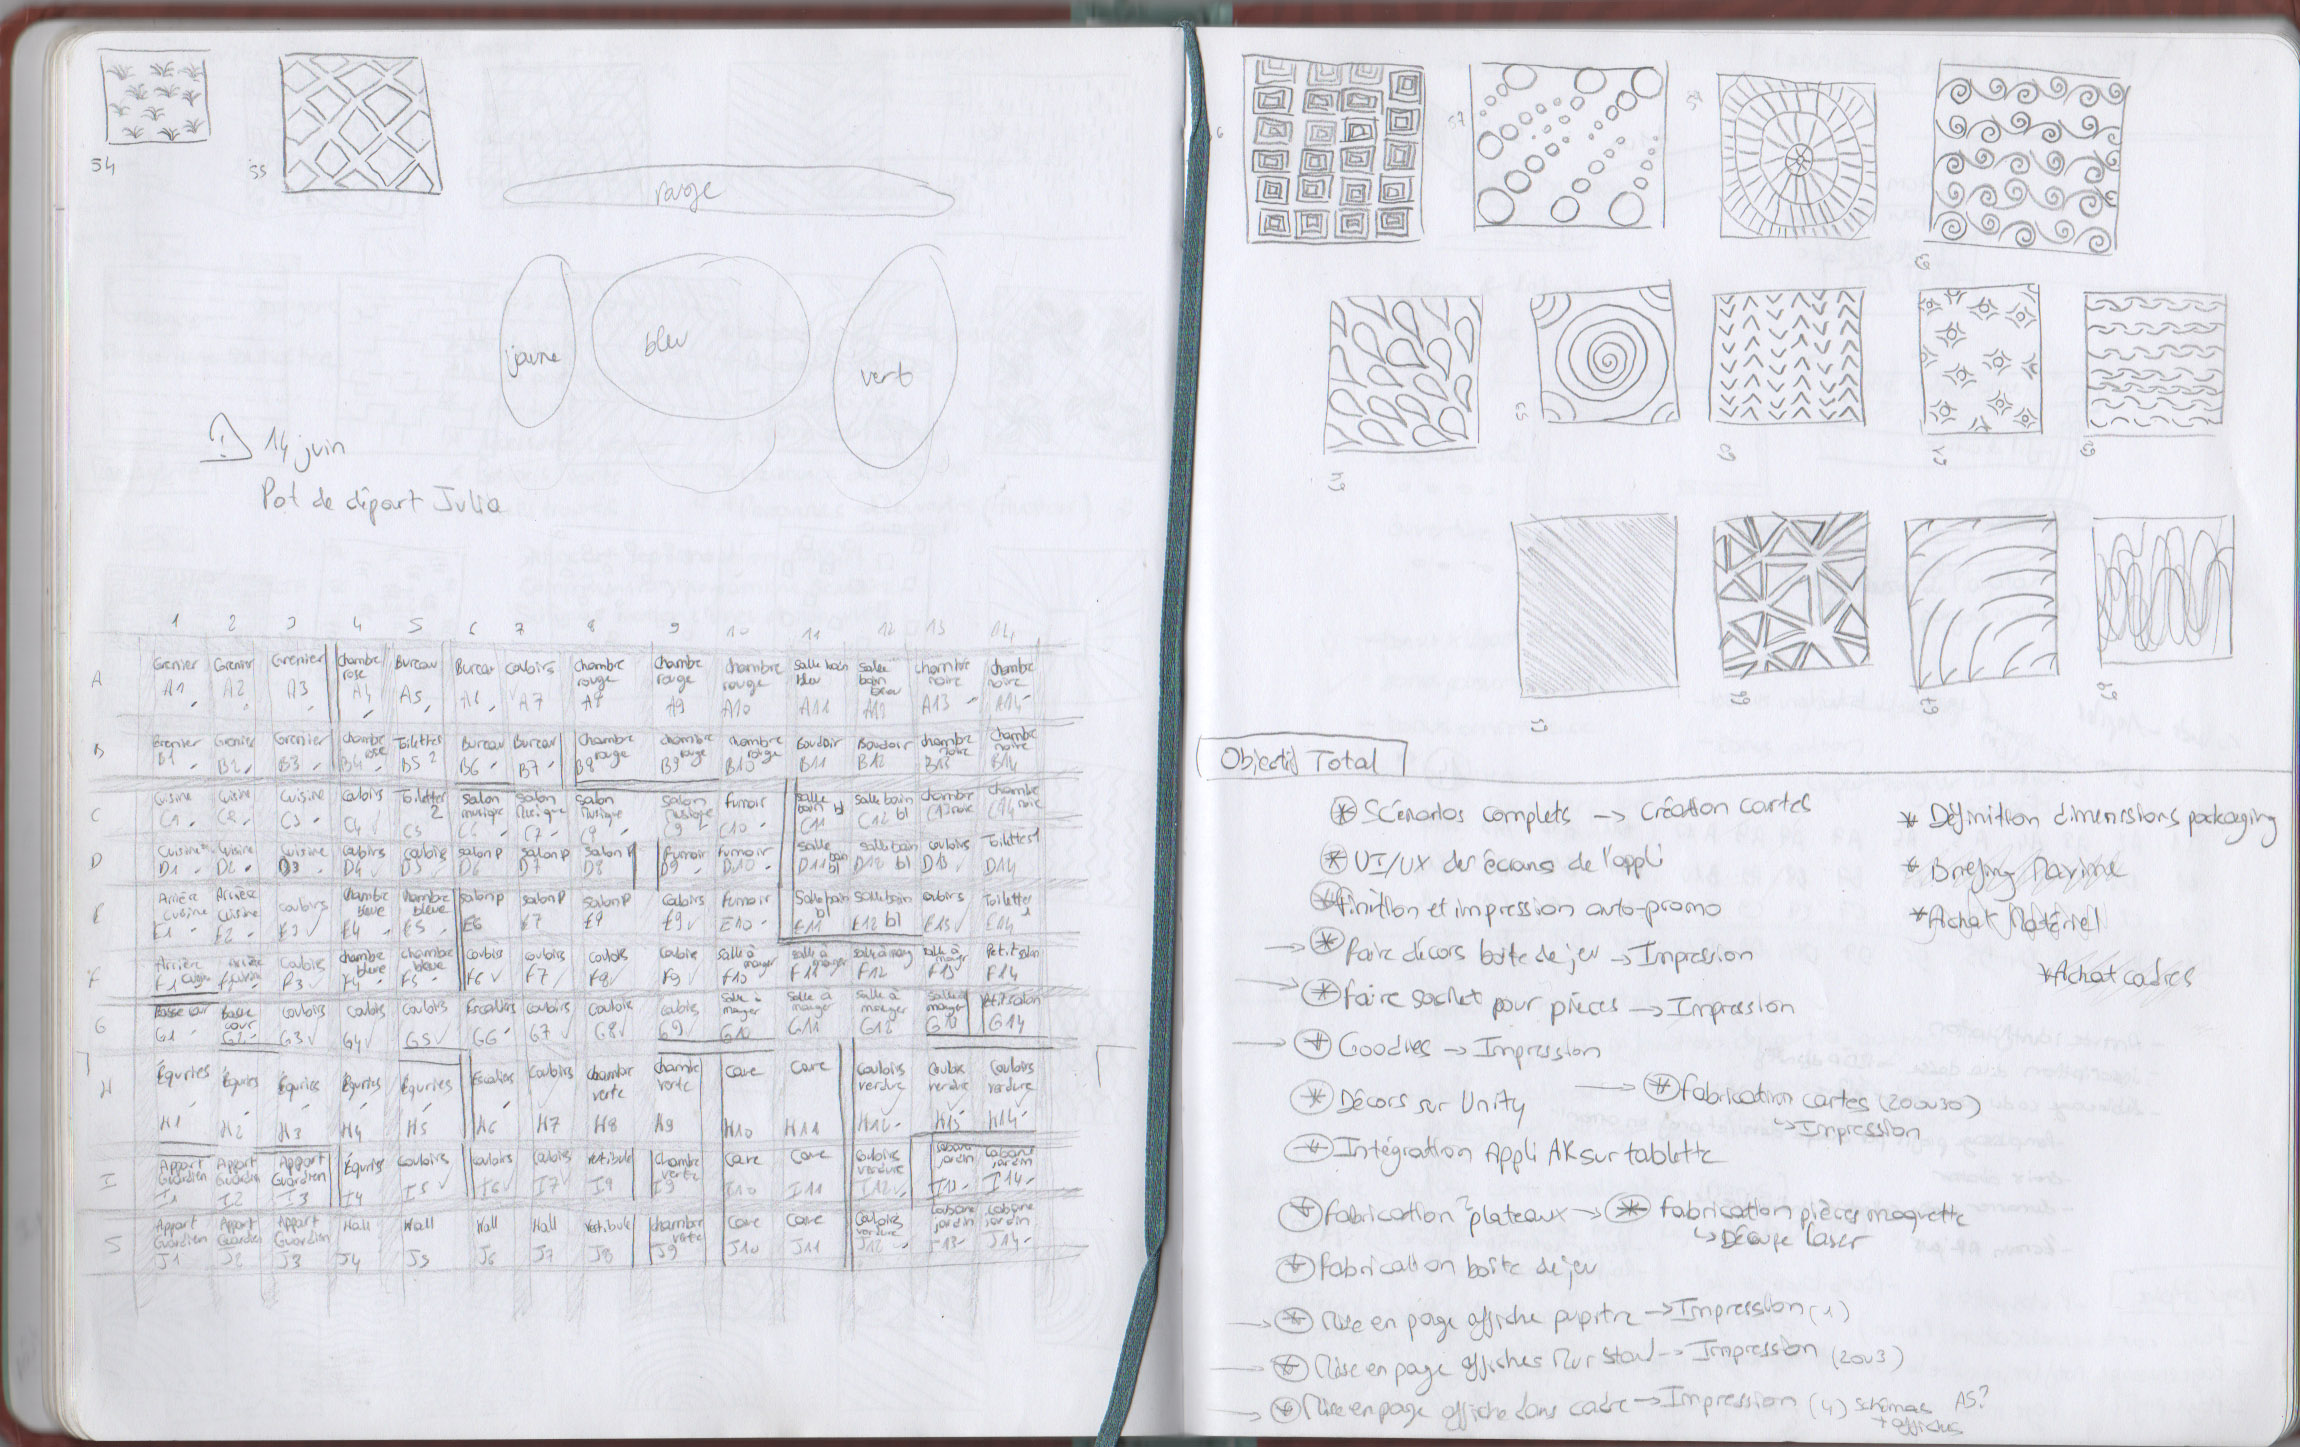 54
55
rouge
jaune
bleu
vert
! 14 juin
Pot de départ Julia
1 2 3 4 5 6 7 8 9 10 11 12 13 14
A
Grenier A1
Grenier A2
Grenier A3
Chambre rose A4
Bureau A5
Bureau A6
Couloirs A7
Chambre rouge A8
Chambre rouge A9
Chambre rouge A10
Salle bain bleu A11
Salle bain bleu A12
Chambre noire A13
Chambre noire A14
B
Grenier B1
Grenier B2
Grenier B3
Chambre rose B4
Toilettes 2 B5
Bureau B6
Bureau B7
Chambre rouge B8
Chambre rouge B9
Chambre rouge B10
Boudoir B11
Boudoir B12
Chambre noire B13
Chambre noire B14
C
Cuisine C1
Cuisine C2
Cuisine C3
Couloirs C4
Toilettes 2 C5
Salon musique C6
Salon Musique C7
Salon Musique C8
Salon Musique C9
Fumoir C10
Salle bain bl C11
Salle bain C12 bl
Chambre C13 noire
Chambre C14 noire
D
Cuisine D1
Cuisine D2
Cuisine D3
Couloirs D4
Couloirs D5
Salon P D6
Salon P D7
Salon P D8
Fumoir D9
Fumoir D10
Salle bain D11 bl
Salle bain D12 bl
Couloirs D13
Toilettes 1 D14
E
Arrière Cuisine E1
Arrière Cuisine E2
Couloirs E3
Chambre bleue E4
Chambre bleue E5
Salon P E6
Salon P E7
Salon P E8
Couloirs E9
Fumoir E10
Salle bain bl E11
Salle bain E12 bl
Couloirs E13
Toilettes 1 E14
F
Arrière Cuisine F1
Arrière Cuisine F2
Couloirs F3
Chambre bleue F4
Chambre bleue F5
Couloirs F6
Couloirs F7
Couloirs F8
Couloirs F9
Salle à manger F10
Salle à manger F11
Salle à mang F12
Salle à manger F13
Petit salon F14
G
Basse cour G1
Basse cour G2
Couloirs G3
Couloirs G4
Couloirs G5
Escaliers G6
Couloirs G7
Couloirs G8
Couloirs G9
Salle à manger G10
Salle à manger G11
Salle à manger G12
Salle à manger G13
Petit salon G14
H
Équries H1
Équries H2
Équries H3
Équries H4
Équries H5
Escaliers H6
Couloirs H7
Chambre verte H8
Chambre verte H9
Cave H10
Cave H11
Couloirs verdure H12
Couloirs verdure H13
Couloirs verdure H14
I
Appart Guardien I1
Appart Guardien I2
Appart Guardien I3
Équries I4
Couloirs I5
Couloirs I6
Couloirs I7
Vestibule I8
Chambre verte I9
Cave I10
Cave I11
Couloirs verdure I12
Cabane jardin I13
Cabane jardin I14
J
Appart Guardien J1
Appart Guardien J2
Appart Guardien J3
Hall J4
Hall J5
Hall J6
Hall J7
Vestibule J8
Chambre verte J9
Cave J10
Cave J11
Couloirs verdure J12
Cabane jardin J13
Cabane jardin J14
57
Objectif Total
Scénarios complets → Création cartes
UI/UX des écrans de l'appli
Finition et impression auto-promo
→ Faire décors boite de jeu → Impression
→ Faire sachet pour pièces → Impression
→ Goodies → Impression
Décors sur Unity
→ Fabrication cartes (20 ou 30)
↳ Impression
Intégration Appli AK sur tablette
Fabrication 2 plateaux → Fabrication pièces maquette
↳ Découpe laser
Fabrication boite de jeu
→ Mise en page affiche pupitre → Impression (1)
→ Mise en page affiches Mur Stand → Impression (2 ou 3)
→ Mise en page affiche dans cadre → Impression (4) schémas A5?
+ affiches
* Définition dimensions packaging
* Briefing Maxime
* Achat Matériel
* Achat cadres